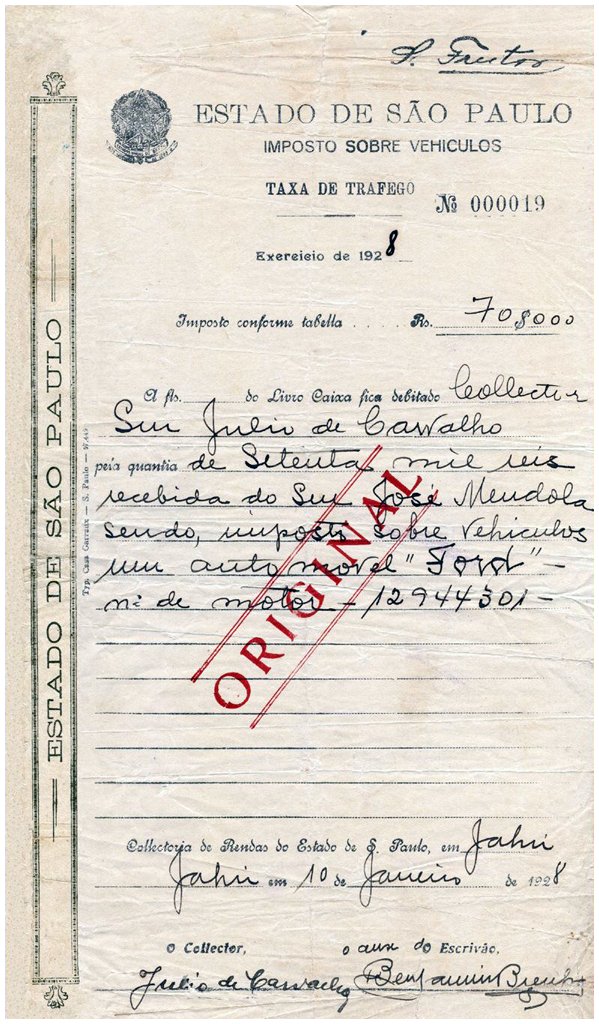 ESTADO DE SÃO PAULO
IMPOSTO SOBRE VEHICULOS
TAXA DE TRAFEGO
№ 000019
Exercicio de 1928
Imposto conforme tabella . . . . . Rs. 70$000
A fls. do Livro Caixa fica debitado Collector
Snr Julio de Carvalho
pela quantia de Setenta mil reis
recebida do Snr José Mendola
sendo, imposto sobre vehiculos
um auto movel "Ford" —
nº de motor — 12944301 —
ORIGINAL
Collectoria de Rendas do Estado de S. Paulo, em Jahú
Jahú em 10 de Janeiro de 1928
O Collector,
O aux do Escrivão,
Julio de Carvalho
Benjamin
ESTADO DE SÃO PAULO
Typ. Casa Garraux — S. Paulo —